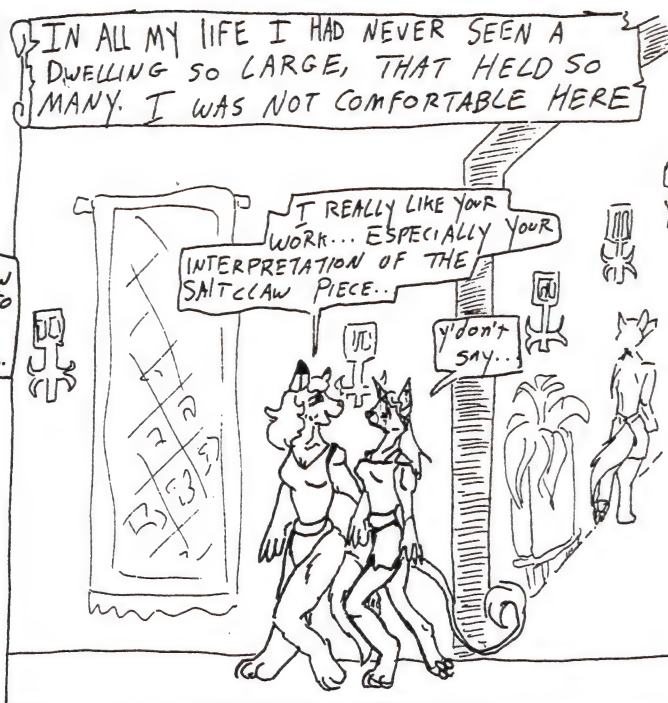 IN ALL MY LIFE I HAD NEVER SEEN A
DWELLING SO LARGE, THAT HELD SO
MANY. I WAS NOT COMFORTABLE HERE
I REALLY LIKE YOUR
WORK... ESPECIALLY YOUR
INTERPRETATION OF THE
SALTCLAW PIECE..
y'don't
say...